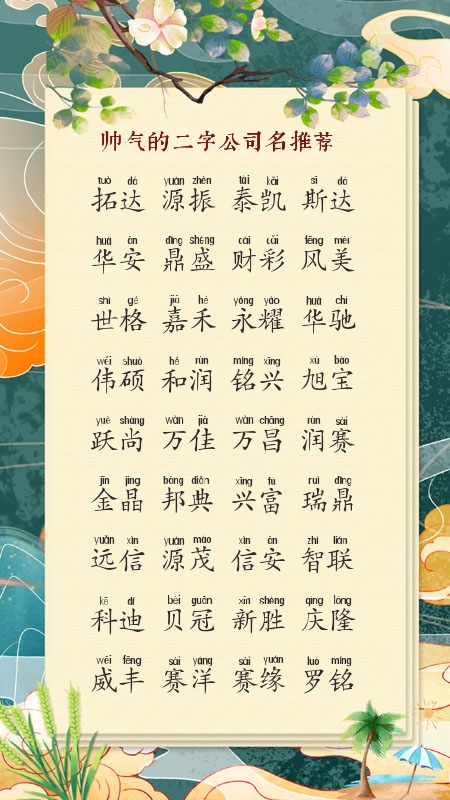 帅气的二字公司名推荐
tuò dá yuán zhèn tài kǎi sī dá
拓达 源振 泰凯 斯达
huá ān dǐng shèng cái cǎi fēng měi
华安 鼎盛 财彩 风美
shì gé jiā hé yǒng yào huá chí
世格 嘉禾 永耀 华驰
wěi shuò hé rùn míng xīng xù bǎo
伟硕 和润 铭兴 旭宝
yuè shàng wàn jiā wàn chāng rùn sài
跃尚 万佳 万昌 润赛
jīn jīng bāng diǎn xīng fù ruì dǐng
金晶 邦典 兴富 瑞鼎
yuǎn xìn yuán mào xìn ān zhì lián
远信 源茂 信安 智联
kē dí bèi guān xīn shèng qìng lóng
科迪 贝冠 新胜 庆隆
wēi fēng sài yáng sài yuán luó míng
威丰 赛洋 赛缘 罗铭